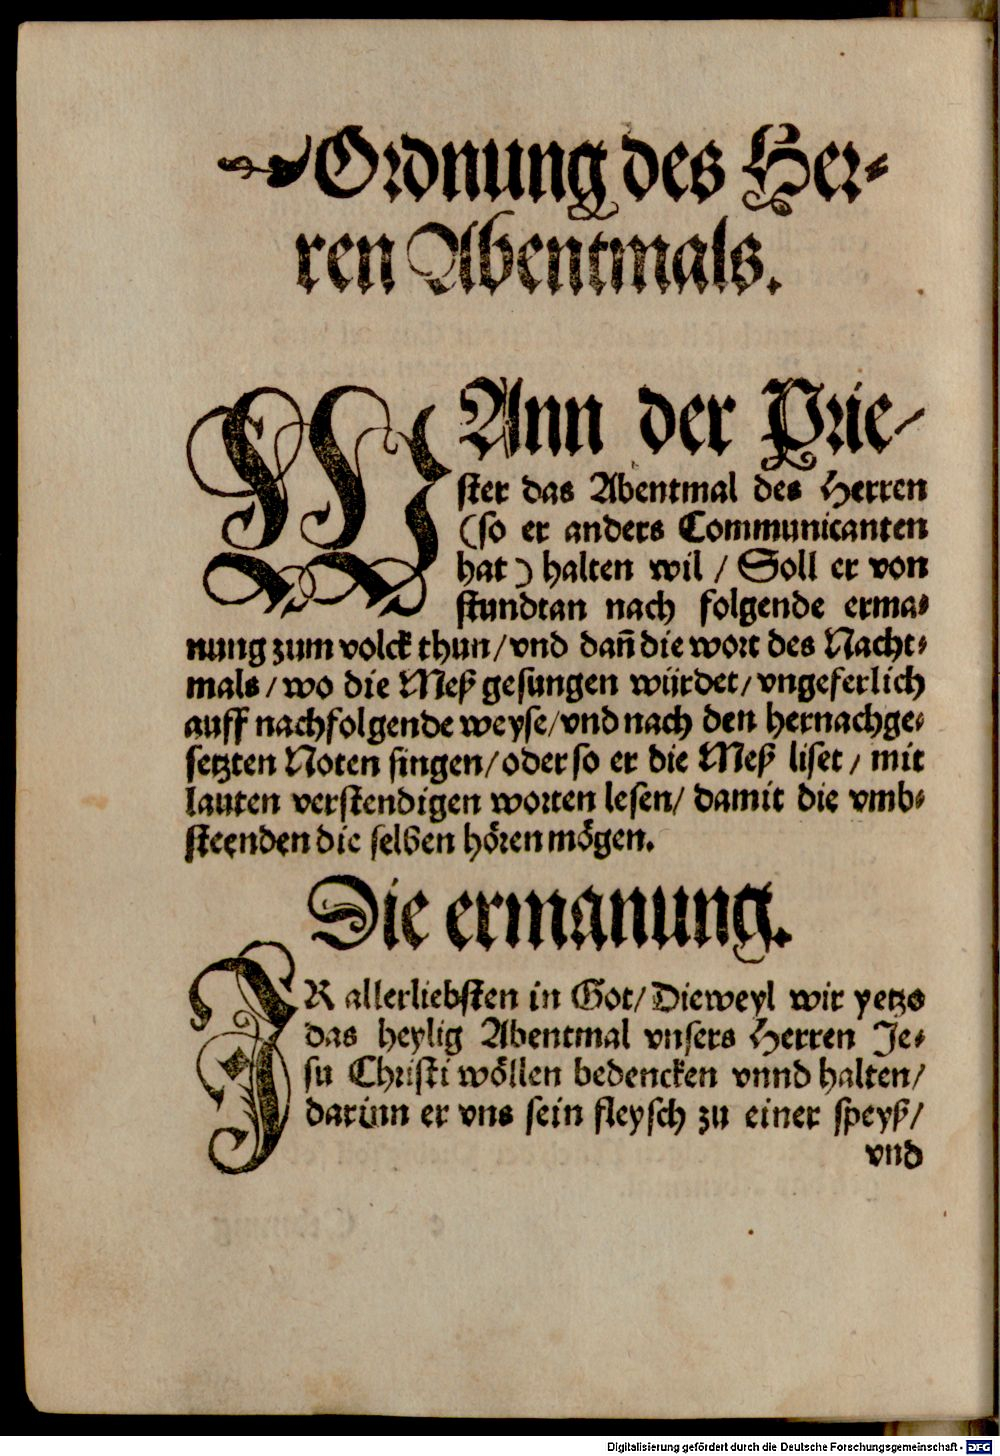 Ordnung des Her⸗
ren Abentmals.
WAnn der Prie⸗
ster das Abentmal des Herren
(so er anders Communicanten
hat) halten wil / Soll er von
stundtan nach folgende erma⸗
nung zum volck thun / vnd dañ die wort des Nacht⸗
mals / wo die Meß gesungen würdet / vngeferlich
auff nachfolgende weyse / vnd nach den hernachge⸗
setzten Noten singen / oder so er die Meß liset / mit
lauten verstendigen worten lesen / damit die vmb⸗
steenden die selben hören mögen.
Die ermanung.
IR allerliebsten in Got / Dieweyl wir yetzo
das heylig Abentmal vnsers Herren Je⸗
su Christi wöllen bedencken vnnd halten /
darinn er vns sein fleysch zu einer speyß /
vnd
Digitalisierung gefördert durch die Deutsche Forschungsgemeinschaft - DFG